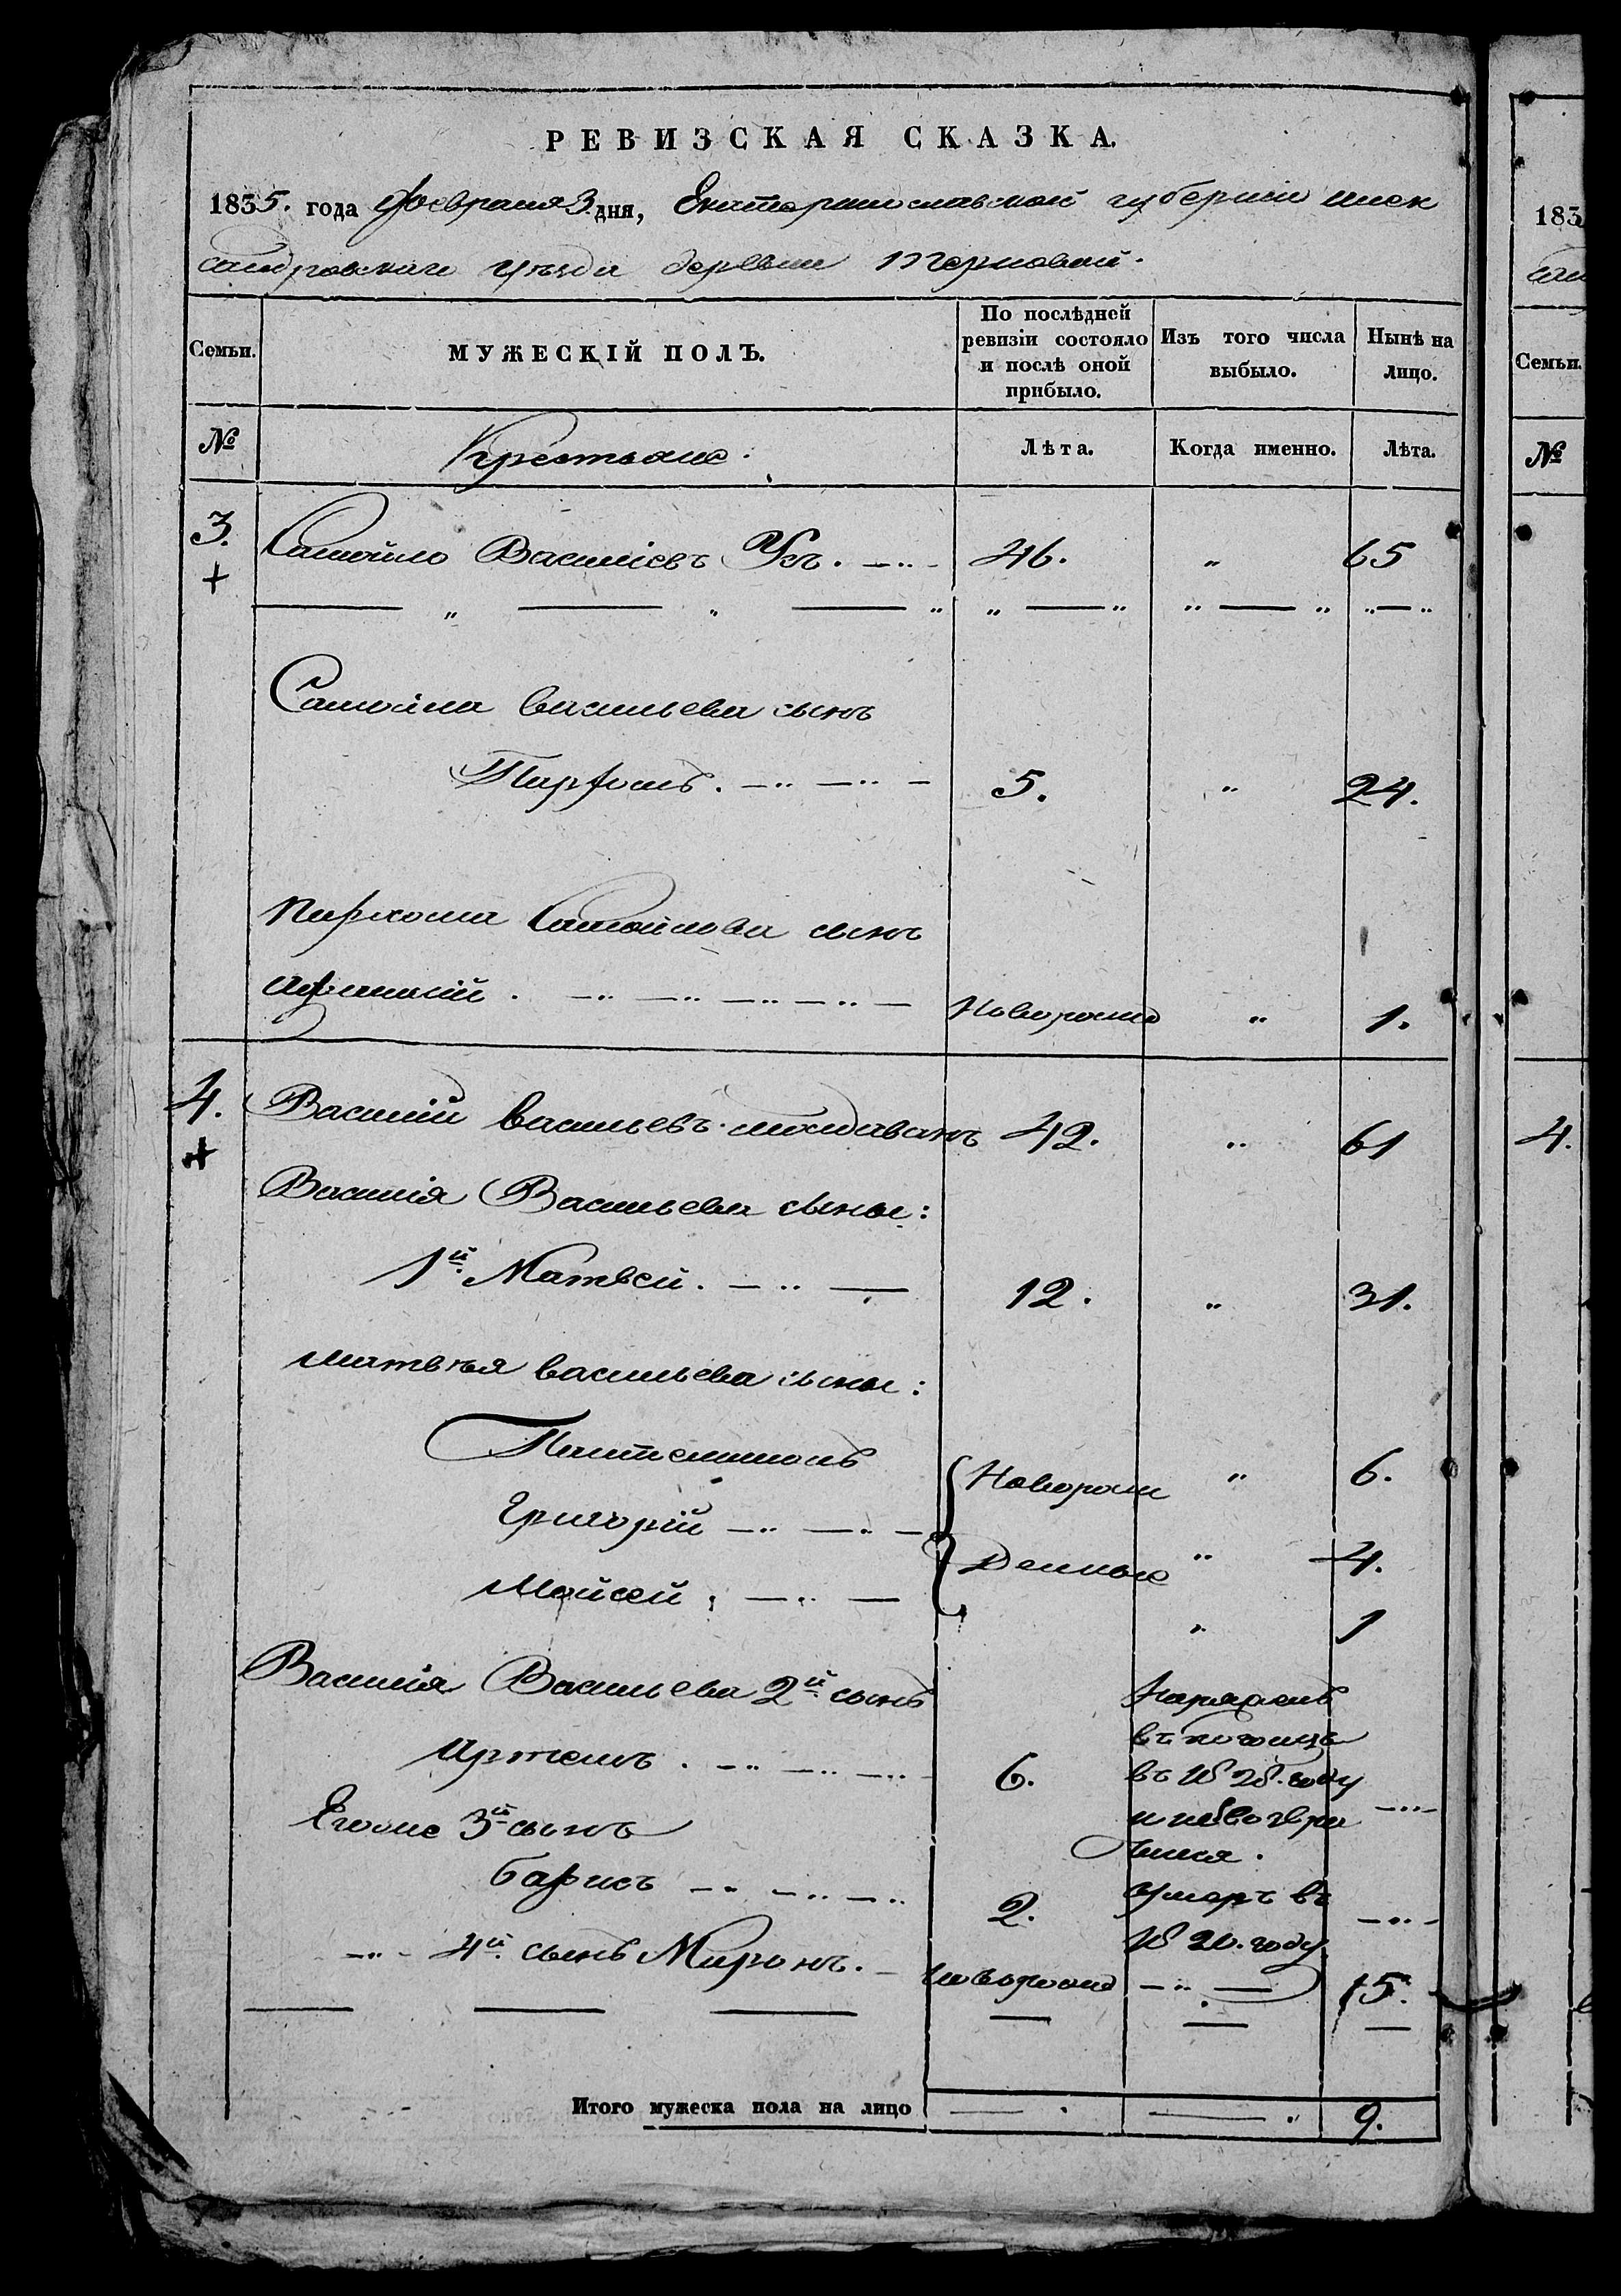 РЕВИЗСКАЯ СКАЗКА.
1835. года Февраля 3 дня, Екатеринославской губернiи алек
сандровскаго уѣзда деревни Терновой.
Семьи. МУЖЕСКІЙ ПОЛЪ. По послѣдней ревизіи состояло и послѣ оной прибыло. Изъ того числа выбыло. Нынѣ на лицо.
№ Крестьяне: Лѣта. Когда именно. Лѣта.
3. Самойло Василiевъ 46. „ 65
Самойла васильева сынъ
Парфомъ. 5. „ 24.
Пархома Самойлова сынъ
Афанасiй. Новорожд „ 1.
4. Василiй васильевъ молдаванъ 42. „ 61
Василiя Васильева сыны:
1й Матвей. 12. „ 31.
матвѣя васильева сыны:
Пантелимонъ Новорож „ 6.
Григорiй Денные „ 4.
Мойсей „ 1
Василiя Васильева 2й сынъ
Артемъ. 6. въ 1828. году
Егоже 3й сынъ
Борисъ 2. умеръ въ 1820. году
4й сынъ Миронъ. новорожд 15.
Итого мужеска пола на лицо 9.
183
Семьи.
№
4.